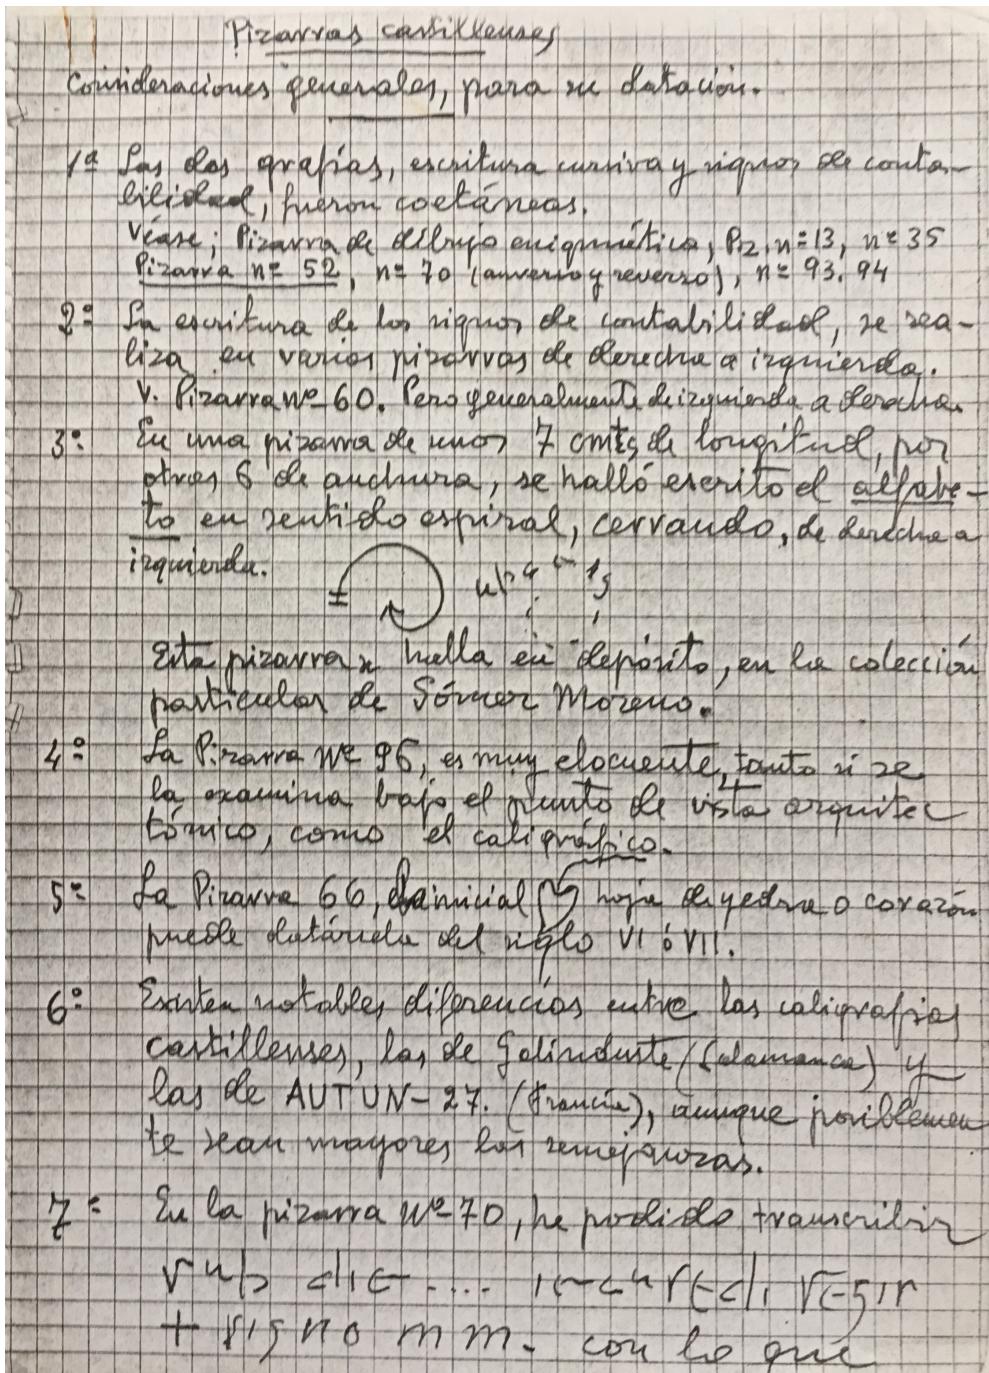 Pizarras castillenses
Consideraciones generales, para su datación.
1ª Las dos grafías, escritura cursiva y signos de conta-
bilidad, fueron coetáneas.
Véase; Pizarra de dibujo enigmético, Piz. nº 13, nº 35
Pizarra nº 52, nº 70 (anverso y reverso), nº 93. 94
2º La escritura de los signos de contabilidad, se rea-
liza en varias pizarras de derecha a izquierda.
V. Pizarra nº 60. Pero generalmente de izquierda a derecha.
3º En una pizarra de unos 7 cmts de longitud, por
otros 6 de anchura, se halló escrito el alfabe-
to en sentido espiral, cerrando, de derecha a
izquierda.
Esta pizarra se halla en depósito, en la colección
particular de Gómez Moreno.
4º La Pizarra nº 96, es muy elocuente, tanto si se
la examina bajo el punto de vista arquitec
tónico, como el caligráfico.
5º La Pizarra 66, inicial hoja de yedra o corazón
puede datársela del siglo VI ó VII.
6º Existen notables diferencias entre las caligrafías
castillenses, las de Galinduste (Salamanca) y
las de AUTUN-27. (Francia), aunque posiblemen
te sean mayores las semejanzas.
7º En la pizarra nº 70, he podido transcribir
+ signo mm. con lo que